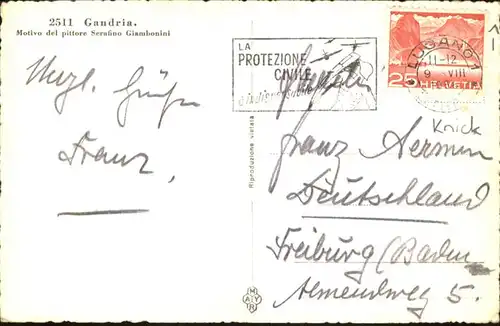 2511 Gandria.
Motivo del pittore Serafino Giambonini
Herzl. Grüße
Franz,
Riproduzione vietata
MAYR
LA
PROTEZIONE
CIVILE
è indispensabile
LUGANO 1
11-12
9 VIII
25 HELVETIA
Knick
Familie
Franz Aermen
Deutschland
Freiburg (Baden
Almendweg 5.